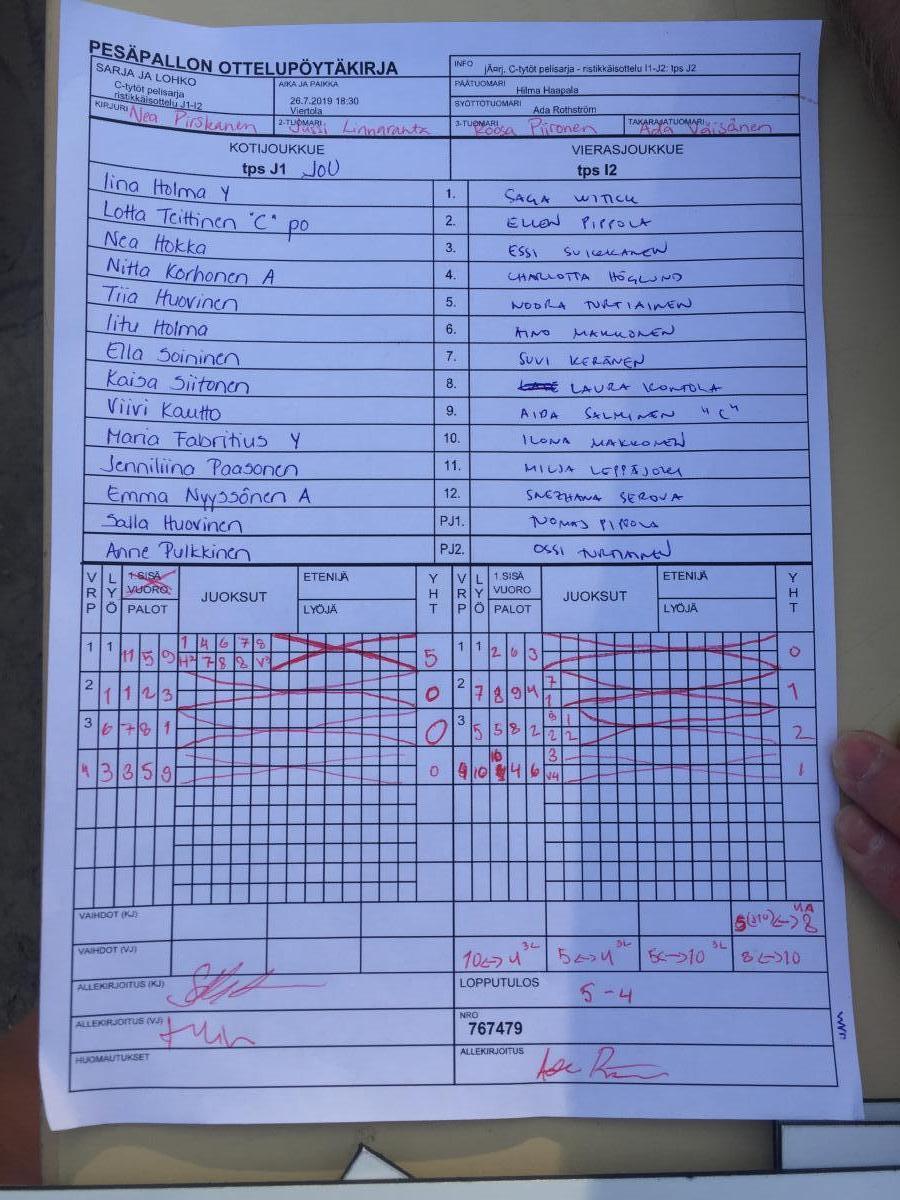 PESÄPALLON OTTELUPÖYTÄKIRJA
SARJA JA LOHKO
C-tytöt pelisarja
ristikkäisottelu J1-I2
AIKA JA PAIKKA
26.7.2019 18:30
Viertola
INFO jÃ¤rj. C-tytöt pelisarja - ristikkäisottelu I1-J2: tps J2
PÄÄTUOMARI Hilma Haapala
SYÖTTÖTUOMARI Ada Rothström
KIRJURI Nea Pirskanen 2-TUOMARI Jussi Linnaranta 3-TUOMARI Roosa Piironen TAKARAJATUOMARI Ada Väisänen
KOTIJOUKKUE VIERASJOUKKUE
tps J1 JoU tps I2
Iina Holma Y 1. SAGA WITICK
Lotta Teittinen "C" po 2. ELLEN PIPPOLA
Nea Hokka 3. ESSI SUIKKANEN
Nitta Korhonen A 4. CHARLOTTA HÖGLUND
Tiia Huovinen 5. NOORA TURTIAINEN
Iitu Holma 6. AINO MAKKONEN
Ella Soininen 7. SUVI KERÄNEN
Kaisa Siitonen 8. LAURA KONTOLA
Viivi Kautto 9. AIDA SALMINEN "C"
Maria Fabritius Y 10. ILONA MAKKONEN
Jenniliina Paasonen 11. MILJA LEPPÄJOKI
Emma Nyyssönen A 12. SNEZHANA SEROVA
Salla Huovinen PJ1. TUOMAS PIPPOLA
Anne Pulkkinen PJ2. OSSI TURTIAINEN
VRP LYÖ 1.SISÄ VUORO PALOT JUOKSUT ETENIJÄ LYÖJÄ YHT VRP LYÖ 1.SISÄ VUORO PALOT JUOKSUT ETENIJÄ LYÖJÄ YHT
1 1 11 5 9 1 4 6 7 8 5 1 1 2 6 3 0
7 8 8
2 1 1 2 3 0 2 7 8 9 4 7 1
1
3 6 7 8 1 0 3 5 5 8 2 8 1 2
2 2
4 3 3 5 9 0 4 10 10 4 6 3 1
V4
VAIHDOT (KJ)
VAIHDOT (VJ) 10<->4 3L 5<->4 3L 5<->10 3L 8<->10
ALLEKIRJOITUS (KJ) LOPPUTULOS 5-4
ALLEKIRJOITUS (VJ) NRO 767479
HUOMAUTUKSET ALLEKIRJOITUS